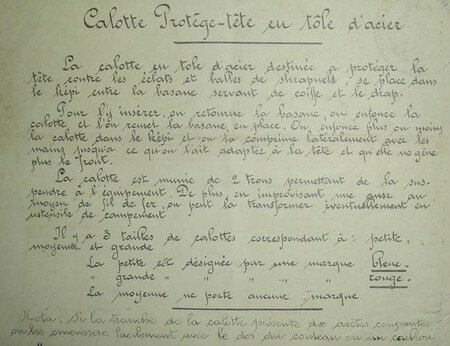 Calotte Protège-tête en tôle d'acier
La calotte en tole d'acier destinée a protéger la
tête contre les éclats et balles de shrapnels se place dans
le képi entre la basane servant de coiffe et le drap.
Pour l'y insérer, on retourne la basane, on enfonce la
calotte et l'on remet la basane en place. On enfonce plus ou moins
la calotte dans le képi et on la comprime latéralement avec les
mains jusqu'a ce qu'on l'ait adaptée à la tête et qu'elle ne gêne
plus le front.
La calotte est munie de 2 trous permettant de la sus-
pendre à l'équipement. De plus, en improvisant une anse au
moyen de fil de fer, on peut la transformer éventuellement en
ustensile de campement
Il y a 3 tailles de calottes correspondant à: petite.
moyenne et grande
La petite est désignée par une marque bleue.
" grande " " " " rouge.
La moyenne ne porte aucune marque
Nota: Si la tranche de la calotte présente des arêtes coupantes
on les émoussera facilement avec le dos du couteau ou un caillou